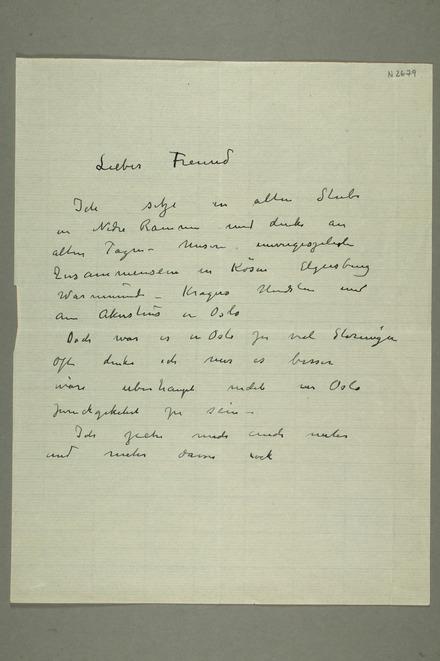 N 2679
Lieber Freund
Ich sitze in alten Stube
in Nedre Rammen und denke an
alten Tagen – Unsere
Zusammensein in Kösen Elgersburg
Warnemünde – Kragerø Hvidsten und
am Akustius in Oslo
Doch war es in Oslo zu viel Störungen
Oft denke ich mir es besser
wäre überhaupt nicht in Oslo
zurückgekehrt zu sein –
Ich ziehe mich auch mehr
und mehr